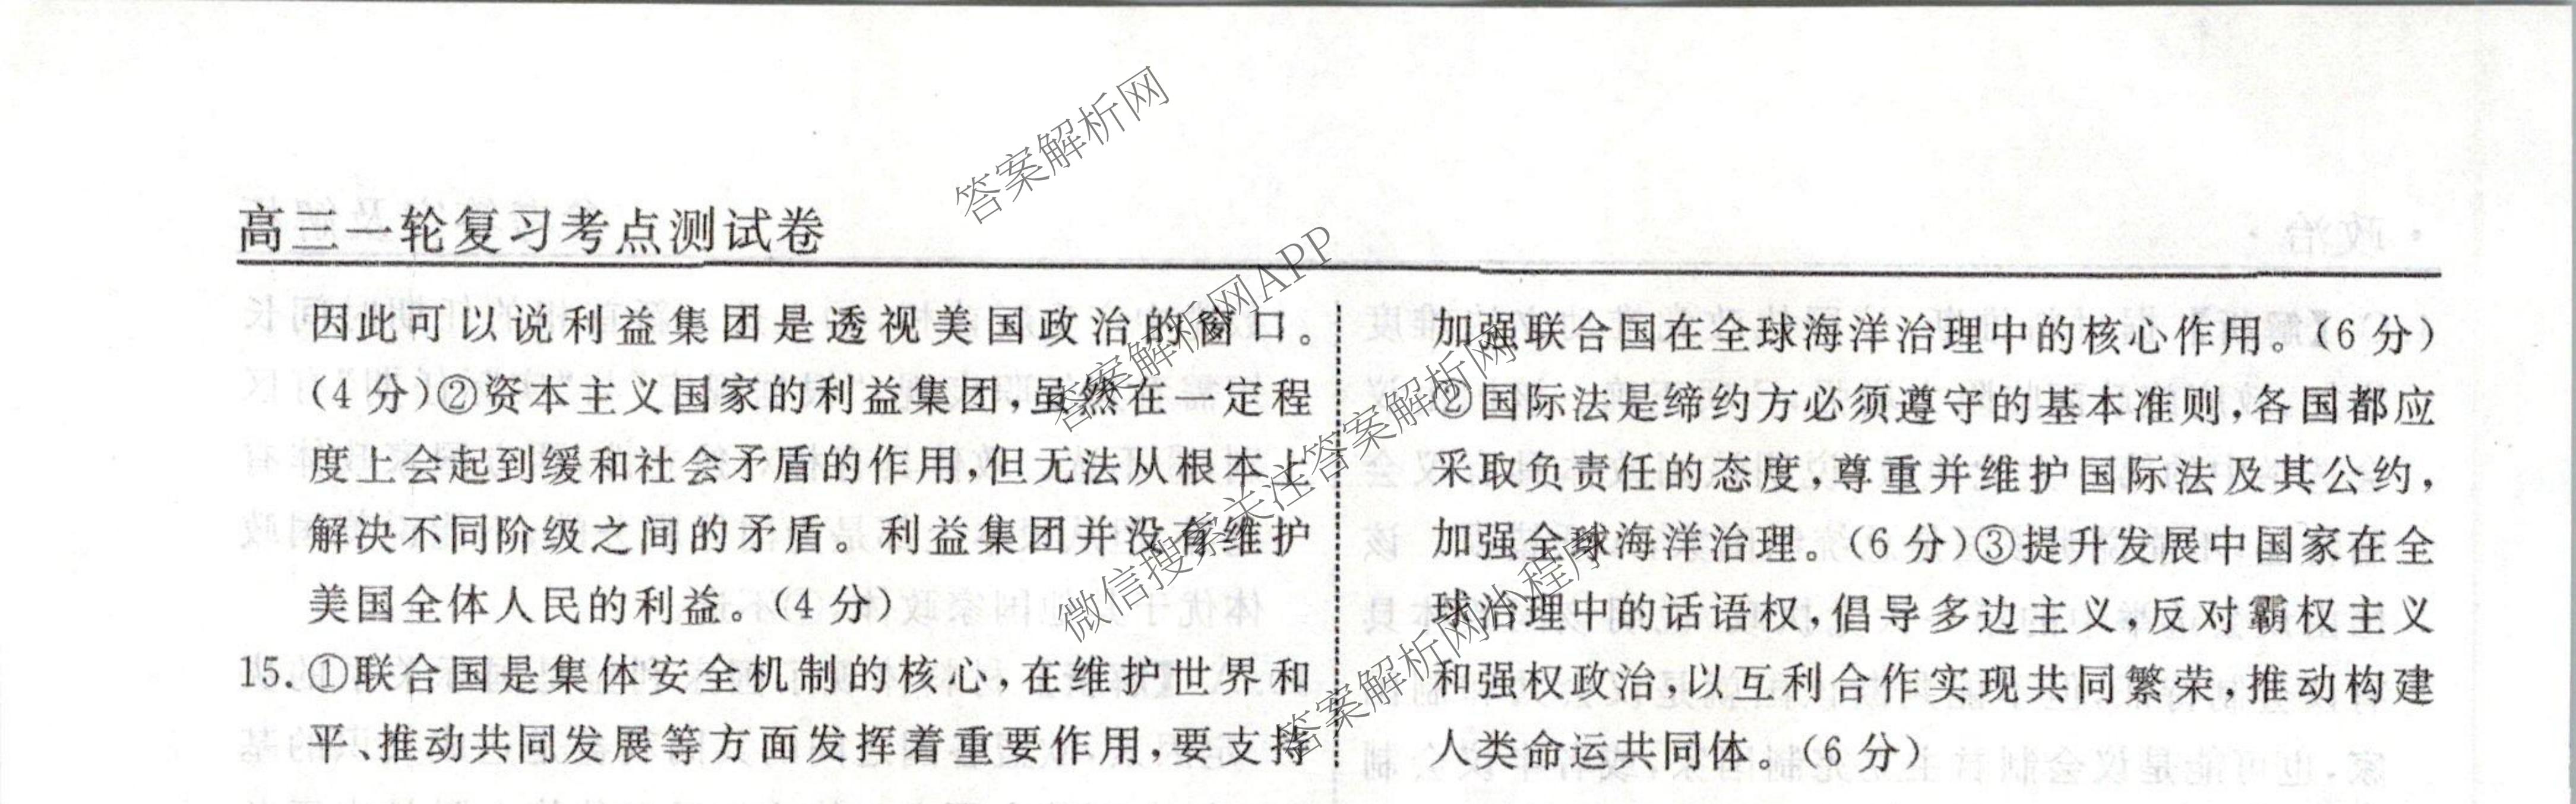 高三一轮复习考点测试卷
因此可以说利益集团是透视美国政治的窗口。
(4分)②资本主义国家的利益集团,虽然在一定程
度上会起到缓和社会矛盾的作用,但无法从根本上
解决不同阶级之间的矛盾。利益集团并没有维护
美国全体人民的利益。(4分)
15.①联合国是集体安全机制的核心,在维护世界和
平、推动共同发展等方面发挥着重要作用,要支持
加强联合国在全球海洋治理中的核心作用。(6分)
②国际法是缔约方必须遵守的基本准则,各国都应
采取负责任的态度,尊重并维护国际法及其公约,
加强全球海洋治理。(6分)③提升发展中国家在全
球治理中的话语权,倡导多边主义,反对霸权主义
和强权政治,以互利合作实现共同繁荣,推动构建
人类命运共同体。(6分)
答案解析网
答案解析网APP
微信搜索关注答案解析网
答案解析网小程序